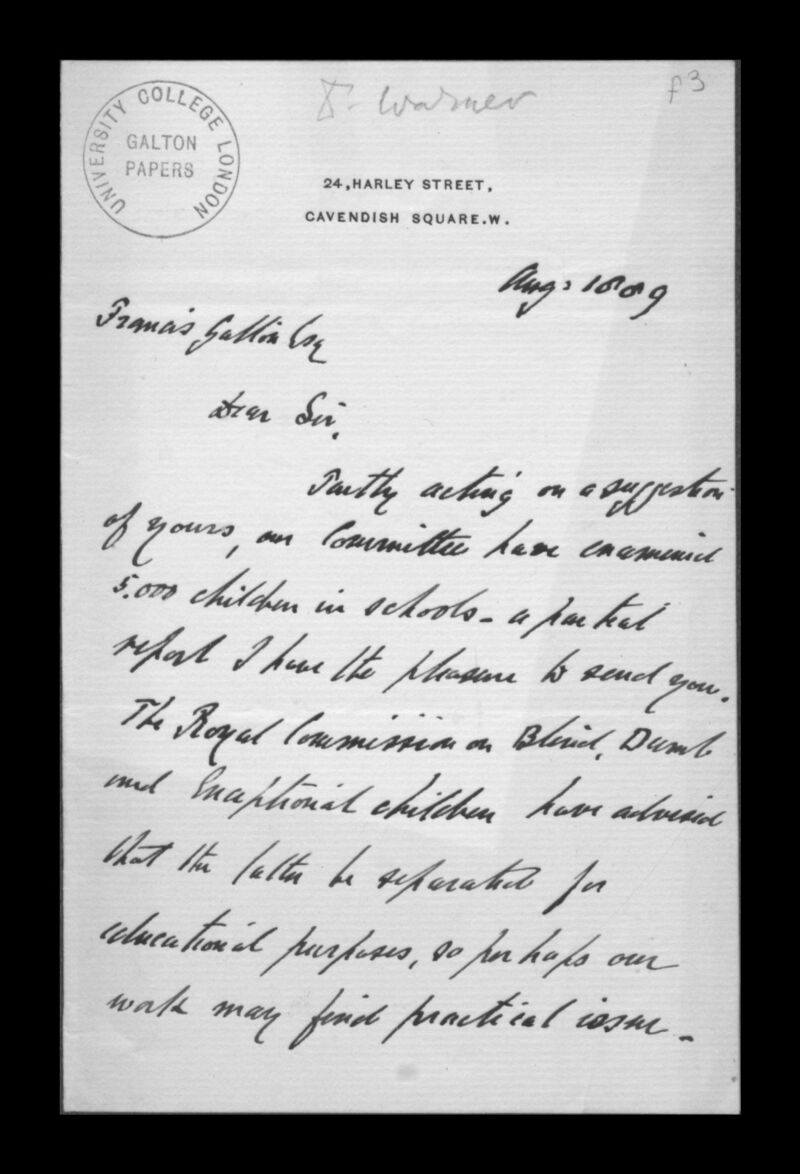 Dr. Warner
f3
UNIVERSITY COLLEGE LONDON
GALTON
PAPERS
24, HARLEY STREET,
CAVENDISH SQUARE. W.
Aug: 1889
Francis Galton Esq
Dear Sir,
Partly acting on a suggestion
of yours, our Committee have examined
5.000 children in schools - a partial
report I have the pleasure to send you.
The Royal Commission on Blind, Dumb
and Exceptional children have advised
that the latter be separated for
educational purposes, so perhaps our
work may find practical issue -